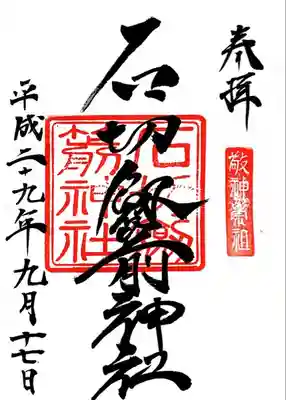 奉拝
敬神崇祖
石切劔箭神社
石切劔箭神社
平成二十九年九月十七日